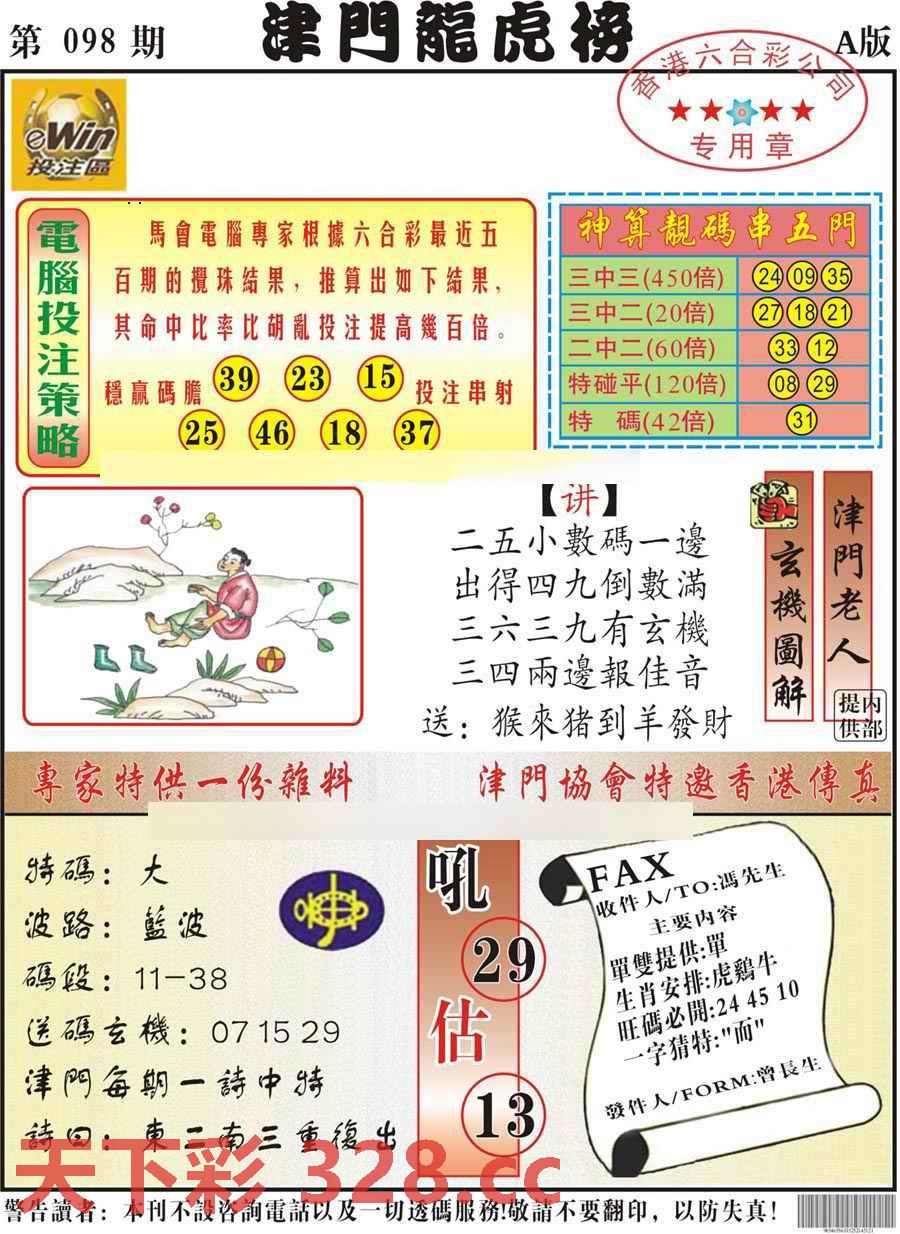 第 098 期
津門龍虎榜
A版
香港六合彩公司
专用章
eWin
投注區
電腦投注策略
馬會電腦專家根據六合彩最近五
百期的攪珠結果，推算出如下結果，
其命中比率比胡亂投注提高幾百倍。
穩贏碼膽 39 23 15 投注串射
25 46 18 37
神算靚碼串五門
三中三(450倍) 24 09 35
三中二(20倍) 27 18 21
二中二(60倍) 33 12
特碰平(120倍) 08 29
特 碼(42倍) 31
【讲】
二五小數碼一邊
出得四九倒數滿
三六三九有玄機
三四兩邊報佳音
送：猴來猪到羊發財
玄機圖解
津門老人
内部提供
專家特供一份雜料
津門協會特邀香港傳真
特碼：大
波路：藍波
碼段：11-38
送碼玄機：07 15 29
津門每期一詩中特
詩曰：東二南三重復出
吼
29
估
13
FAX
收件人/TO:馮先生
主要内容
單雙提供:單
生肖安排:虎鷄牛
旺碼必開:24 45 10
一字猜特:"而"
發件人/FORM:曾長生
天下彩 328.cc
警告讀者：本刊不設咨詢電話以及一切透碼服務!敬請不要翻印，以防失真！